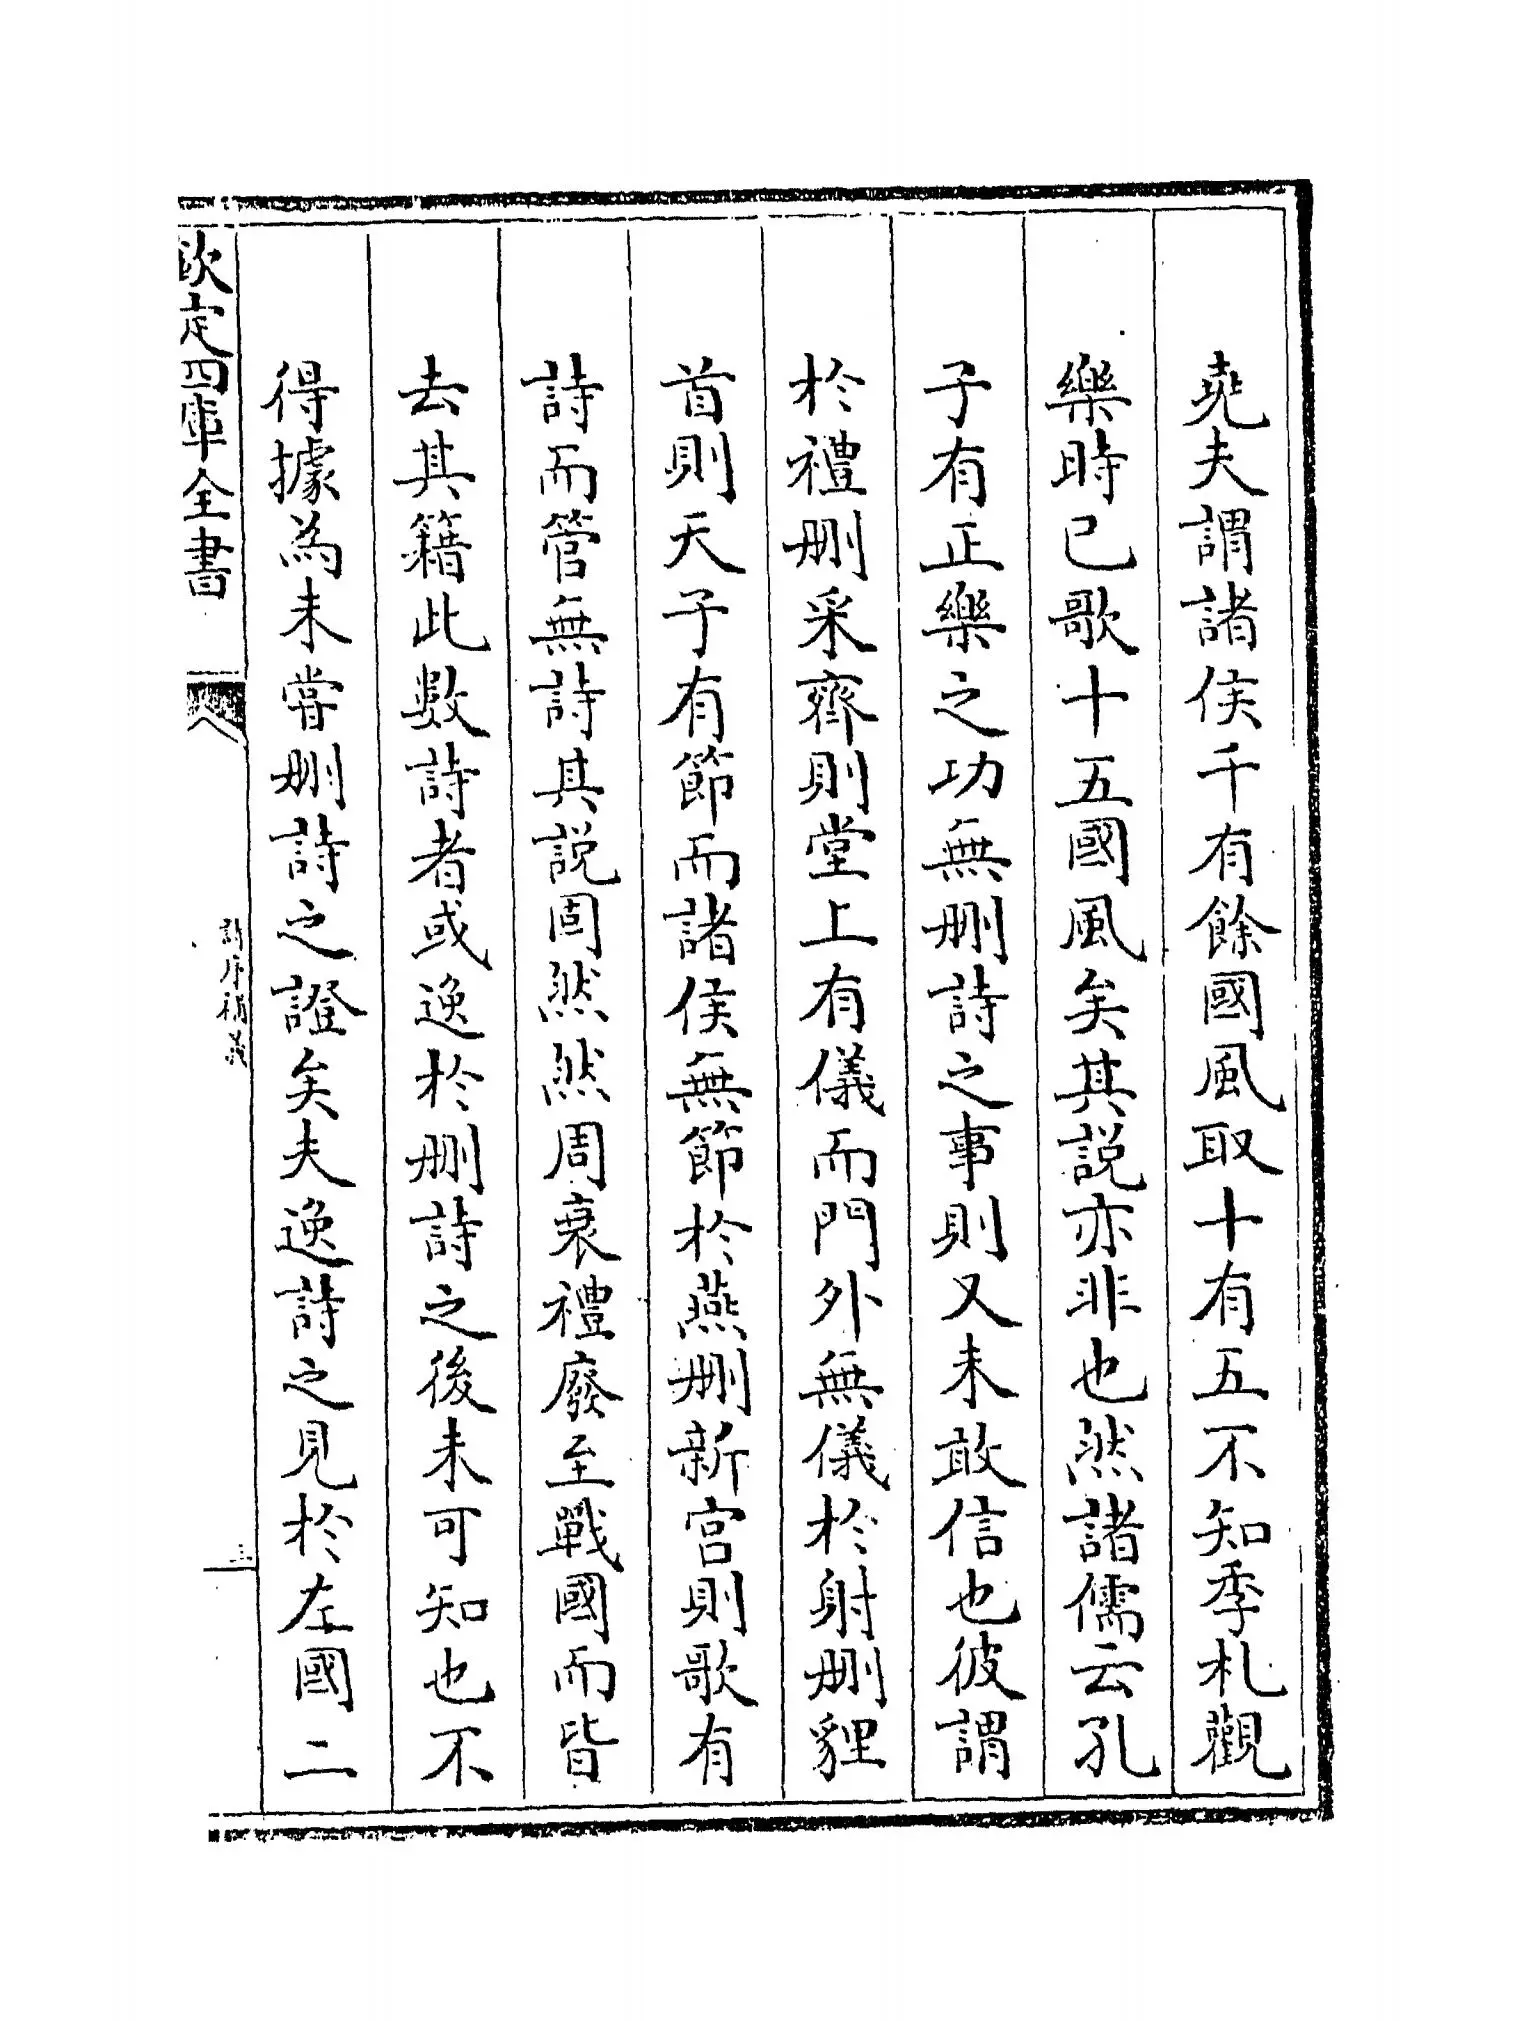 堯夫謂諸侯千有餘國風取十有五不知季札觀
樂時已歌十五國風矣其説亦非也然諸儒云孔
子有正樂之功無刪詩之事則又未敢信也彼謂
於禮刪采齊則堂上有儀而門外無儀於射刪貍
首則天子有節而諸侯無節於燕刪新宫則歌有
詩而管無詩其説固然然周衰禮廢至戰國而皆
去其籍此數詩者或逸於刪詩之後未可知也不
得據為未嘗刪詩之證矣夫逸詩之見於左國二
欽定四庫全書
詩序補義
三